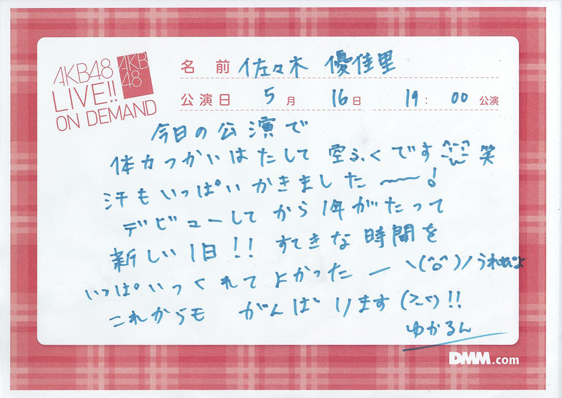 AKB48
LIVE!!
ON DEMAND
AKB
48
名 前 佐々木 優佳里
公演日 5月 16日 19:00 公演
今日の公演で
体力つかいはたして 空ふくです 笑
汗もいっぱいかきました〜〜!
デビューしてから1年がたって
新しい1日!! すてきな時間を
いっぱいつくれてよかったー \(^o^)/うれぴよ
これからも がんばります(><)!!
ゆかるん
DMM.com